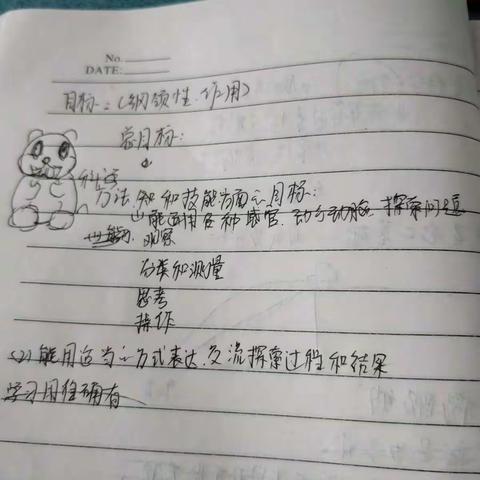 No.
DATE:
目标：(纲领性.作用)
总目标：
科学
方法.知和技能方面之目标：
(1)能运用各种感官.动手动脑.探索问题
观察
分类和测量
思考
操作
(2)能用适当之方式表达.交流探索过程和结果
学习用准确有